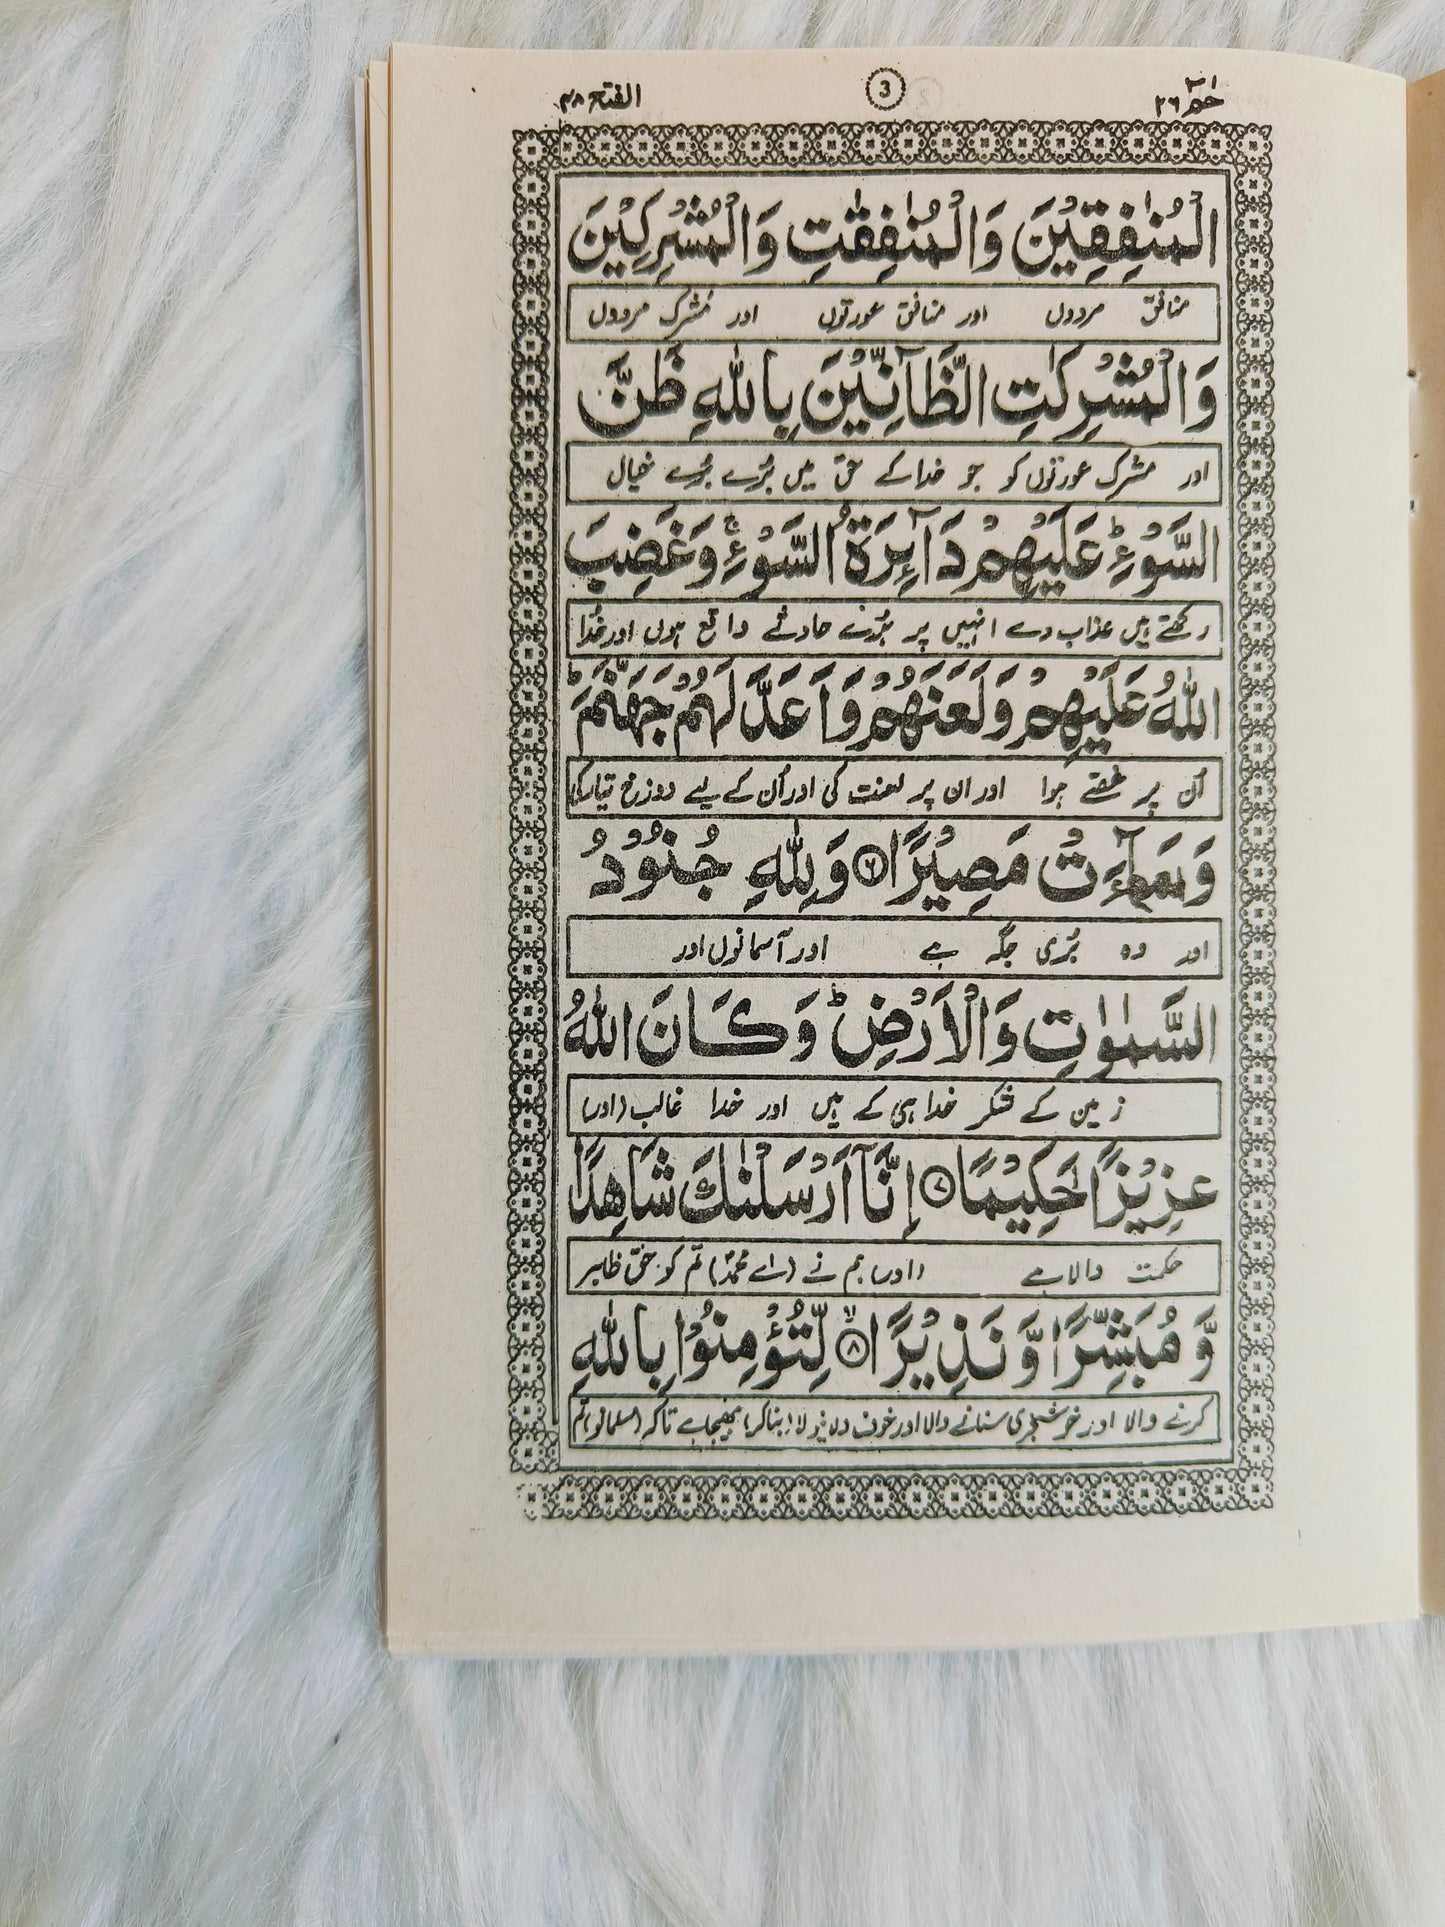 حٰمٓ ٢٦
3
الفتح ٤٨
الْمُنٰفِقِيْنَ وَالْمُنٰفِقٰتِ وَالْمُشْرِكِيْنَ
منافق مردوں اور منافق عورتوں اور مُشرک مردوں
وَالْمُشْرِكٰتِ الظَّآنِّيْنَ بِاللّٰهِ ظَنَّ
اور مشرک عورتوں کو جو خدا کے حق میں بُرے بُرے خیال
السَّوْءِ ؕ عَلَيْهِمْ دَآئِرَةُ السَّوْءِ ۚ وَغَضِبَ
رکھتے ہیں عذاب دے انہیں پر بُرے حادثے واقع ہوں اور خُدا
اللّٰهُ عَلَيْهِمْ وَلَعَنَهُمْ وَاَعَدَّ لَهُمْ جَهَنَّمَ ؕ
اُن پر غصّے ہوا اور ان پر لعنت کی اور اُن کے لیے دوزخ تیار کی
وَسَآءَتْ مَصِيْرًا ۝٦ وَلِلّٰهِ جُنُوْدُ
اور وہ بُری جگہ ہے اور آسمانوں اور
السَّمٰوٰتِ وَالْاَرْضِ ؕ وَكَانَ اللّٰهُ
زمین کے لشکر خدا ہی کے ہیں اور خدا غالب (اور)
عَزِيْزًا حَكِيْمًا ۝٧ اِنَّآ اَرْسَلْنٰكَ شَاهِدًا
حکمت والا ہے (اور) ہم نے (اے محمدؐ) تم کو حق ظاہر
وَّمُبَشِّرًا وَّنَذِيْرًا ۝٨ لِّتُؤْمِنُوْا بِاللّٰهِ
کرنے والا اور خوشخبری سنانے والا اور خوف دلانیوالا (بناکر) بھیجا ہے تاکہ (مسلمانو) تم